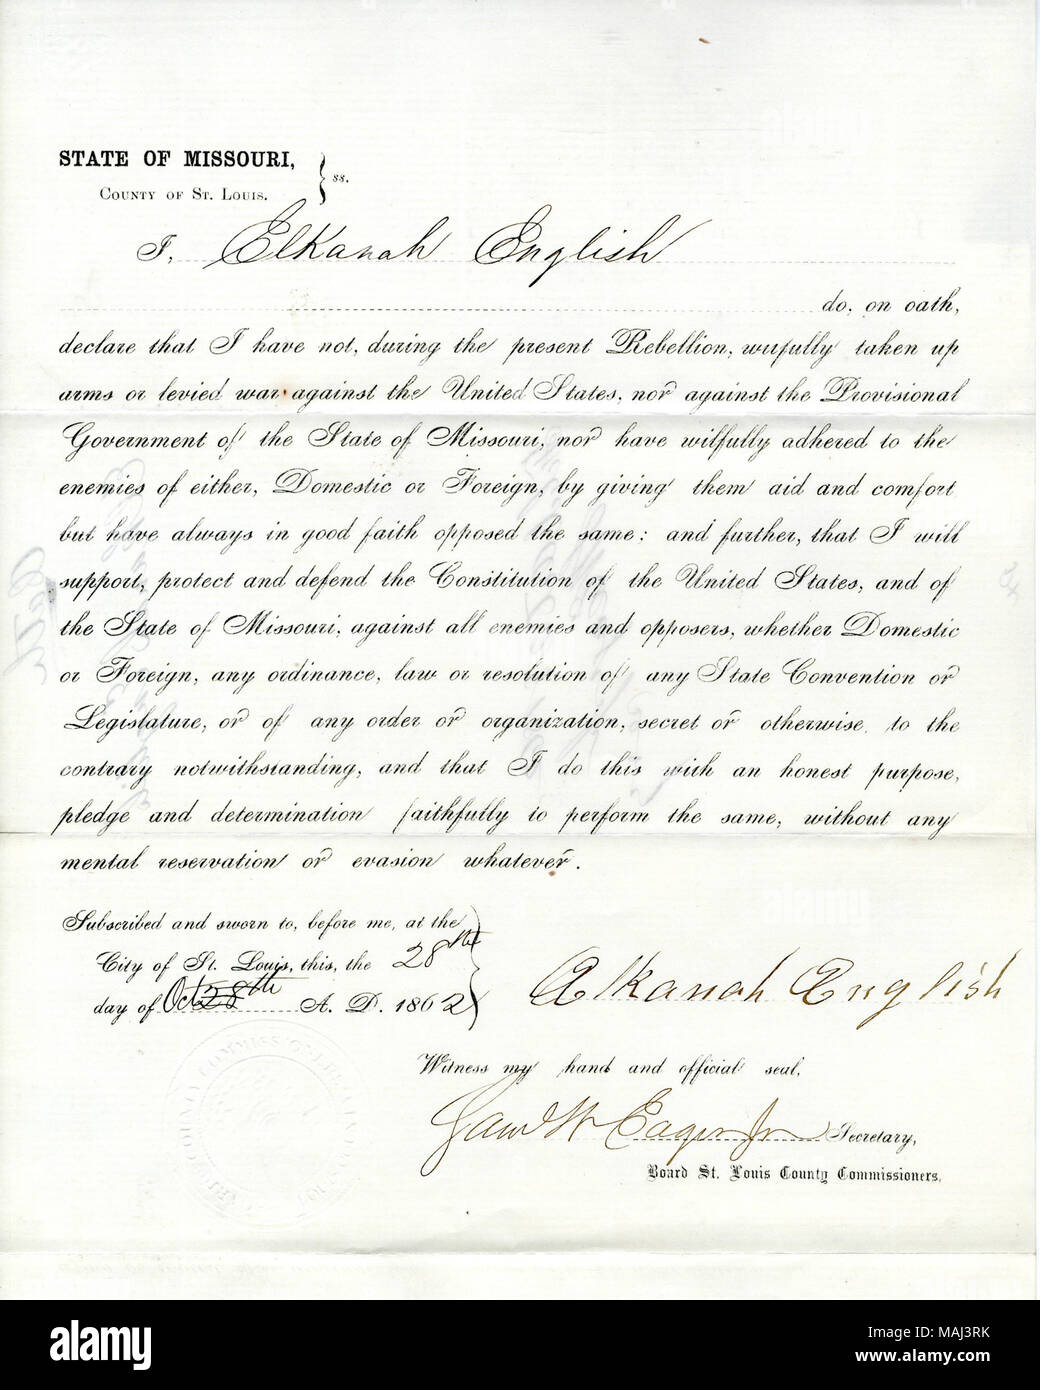 STATE OF MISSOURI,
County of St. Louis.
ss.
I, Elkanah English
do, on oath,
declare that I have not, during the present Rebellion, wilfully taken up
arms or levied war against the United States, nor against the Provisional
Government of the State of Missouri, nor have wilfully adhered to the
enemies of either, Domestic or Foreign, by giving them aid and comfort
but have always in good faith opposed the same: and further, that I will
support, protect and defend the Constitution of the United States, and of
the State of Missouri, against all enemies and opposers, whether Domestic
or Foreign, any ordinance, law or resolution of any State Convention or
Legislature, or of any order or organization, secret or otherwise, to the
contrary notwithstanding, and that I do this with an honest purpose,
pledge and determination faithfully to perform the same, without any
mental reservation or evasion whatever.
Subscribed and sworn to, before me, at the
City of St. Louis, this, the 28th
day of Oct 28th A. D. 1862
Elkanah English
Witness my hand and official seal,
W Eager Jr Secretary,
Board St. Louis County Commissioners.
alamy
Image ID: MAJ3RK
www.alamy.com